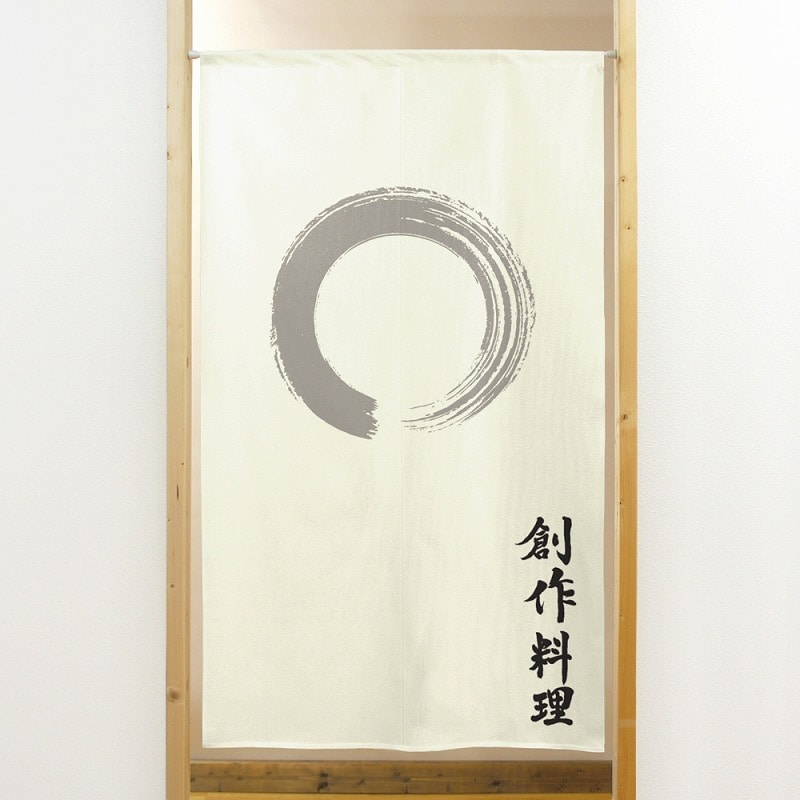 創作料理